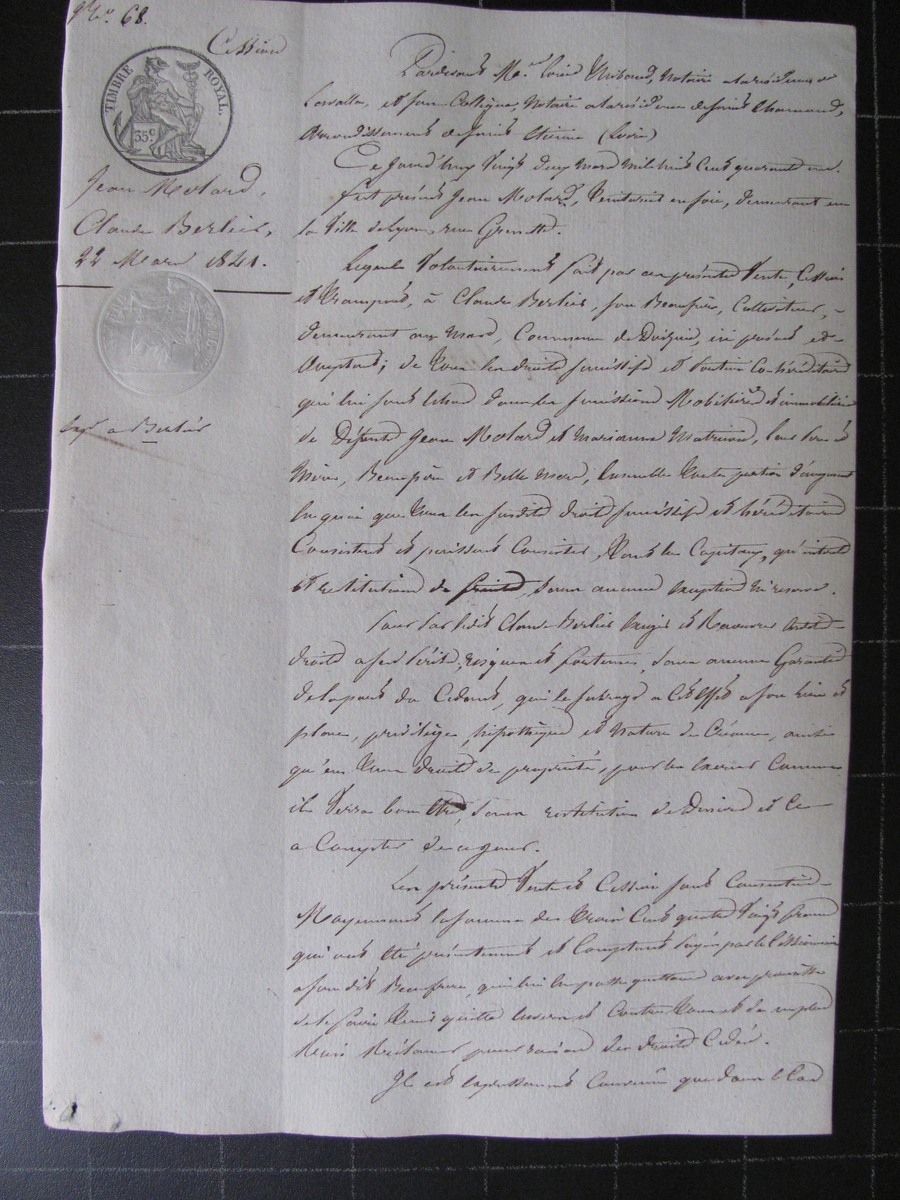 68.
Cession
TIMBRE ROYAL.
35c
Jean Molard,
Claude Berlier,
22 Mars 1841.
a Berlier
Pardevant Me. Louis Thibaud, Notaire a la résidence de
Lavalla, et son Collègue, Notaire a la résidence de Saint Chamond,
Arrondissement de Saint Etienne (Loire)
Ce jourd'huy Vingt deux Mars mil huit Cent quarante un.
fut présent Jean Molard, Teinturier en soie, demeurant en
la Ville de Lyon, rue Grenette.
Lequel Volontairement fait par ces présentes Vente, Cession
et transport, à Claude Berlier, son Beaufrère, Cultivateur,
demeurant au Mas, Commune de Doizieu, ici présent et
Acceptant; de tous les droits successifs et portion Cohéréditaire
qui lui sont échus dans les successions Mobilière et immobilière
de Défunts Jean Molard et Marianne Matricon, leurs père et
Mère, Beaupère et Belle Mère, Ensemble toute portion d'augment
en quoi que tous les susdits droits successifs et héréditaires
Consistent et puissent Consister, tant en Capitaux, qu'intérêts
et restitutions de fruits, sans aucune exception ni réserve.
Pour par ledit Claude Berlier Exiger et Recouvrer lesdits
droits a ses périls, risques et fortunes, sans aucune Garantie
de la part du Cédant, qui le subroge a cet effet a son lieu et
place, privilège, hipothèque et Nature de Créance, ainsi
qu'en tous droits de propriété, pour les Exercer Comme
il Verra bon être, sans restitution de Deniers et Ce
a Compter de ce jour.
Les présentes Vente et Cession sont Consenties
Moyennant la somme de trois Cent quatre Vingt francs
qui ont été présentement et Comptant payés par le Cessionnaire
a son dit Beaufrère, qui lui en passe quittance avec promesse
de le faire tenir quitte Envers et Contre tous et de ne plus
Rien Réclamer pour raison des droits Cédés.
Il est Expressément Convenu que dans le Cas